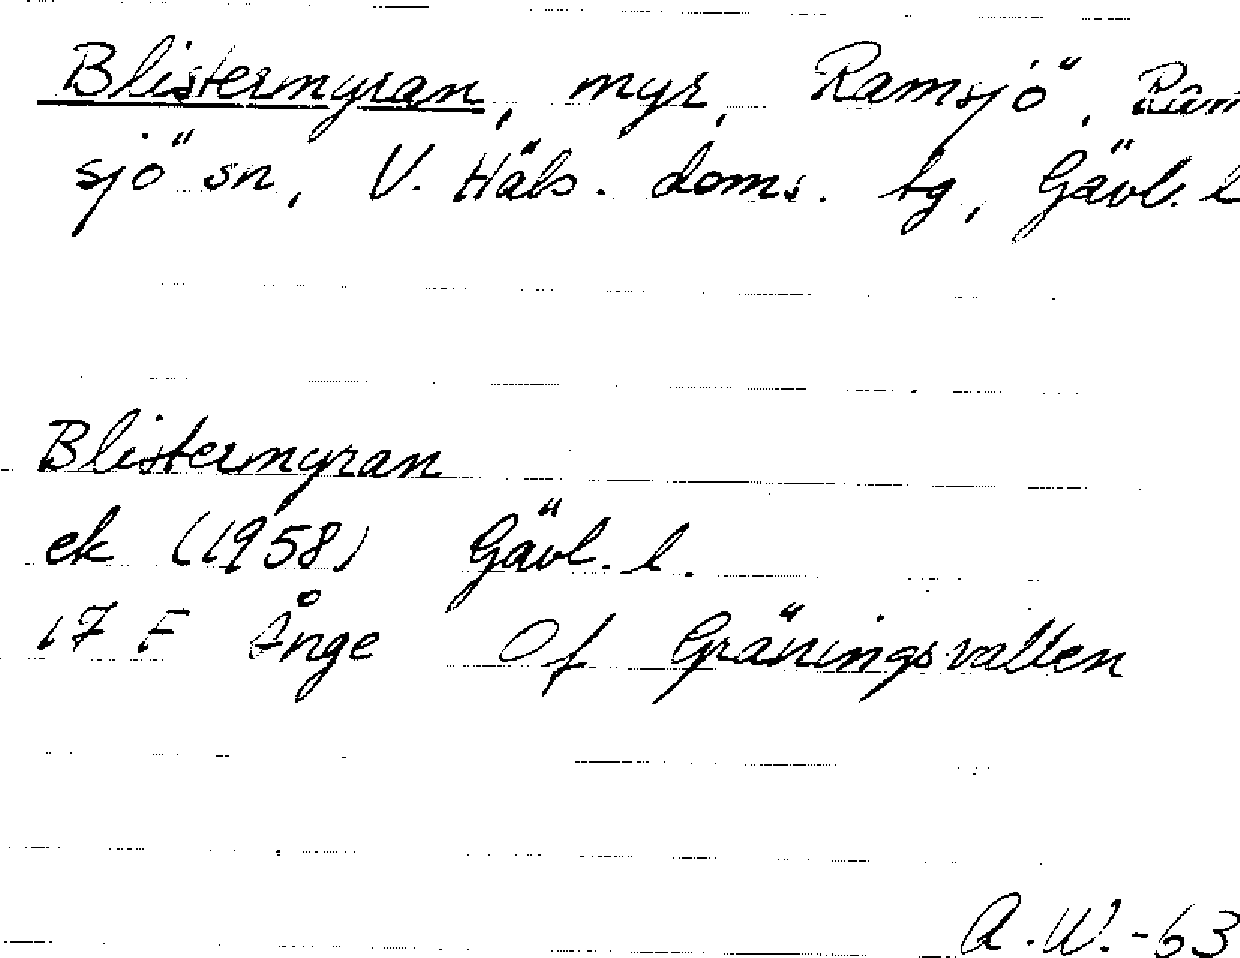 Blistermyran, myr, Ramsjö, Ram
sjö sn, V. Häls. doms. tg, Gävl. l
Blistermyran
ek (1958) Gävl. l.
17 F Ånge Of Gräningsvallen
A.W.-63